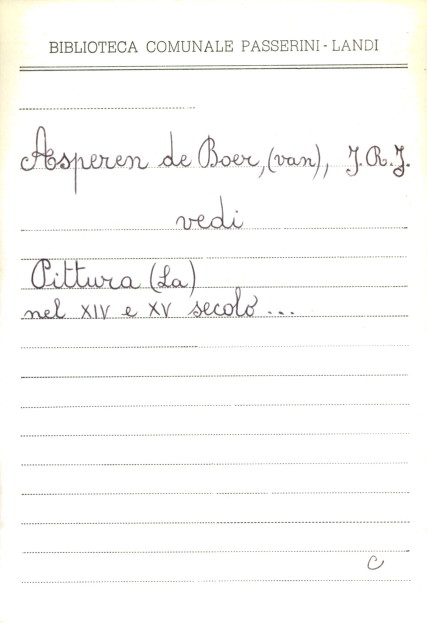 BIBLIOTECA COMUNALE PASSERINI-LANDI
Asperen de Boer, (van), J.R.J.
vedi
Pittura (La)
nel XIV e XV secolo ...
C